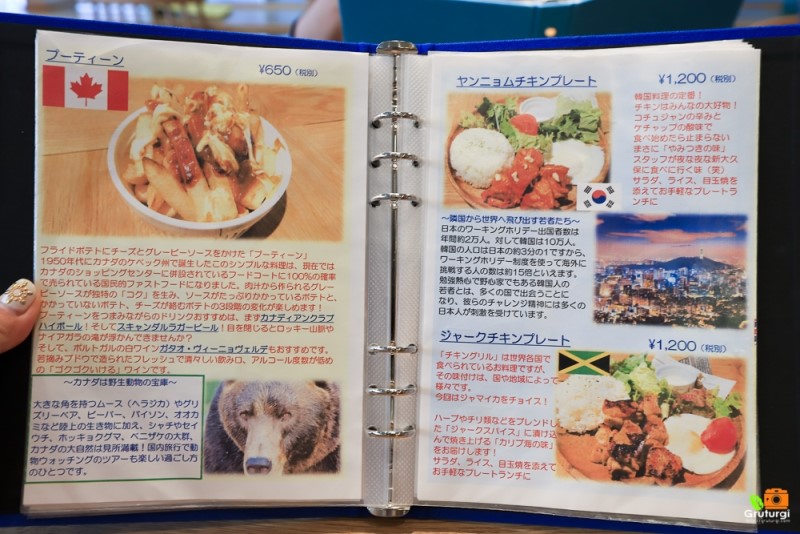 プーティーン
¥650（税別）
フライドポテトにチーズとグレービーソースをかけた「プーティーン」
1950年代にカナダのケベック州で誕生したこのシンプルな料理は、現在では
カナダのショッピングセンターに併設されているフードコートに100%の確率
で売られている国民的ファストフードになりました。肉汁から作られるグレー
ビーソースが独特の「コク」を生み、ソースがたっぷりかかっているポテトと、
かかっていないポテト、チーズが絡むポテトの3段階の変化が楽しめます！
プーティーンをつまみながらのドリンクおすすめは、まずカナディアンクラブ
ハイボール！そしてスキャンダルラガービール！目を閉じるとロッキー山脈や
ナイアガラの滝が浮かんできませんか？
そして、ポルトガルの白ワインガタオ・ヴィーニョヴェルデもおすすめです。
若摘みブドウで造られたフレッシュで清々しい飲み口、アルコール度数が低め
の「ゴクゴクいける」ワインです。
～カナダは野生動物の宝庫～
大きな角を持つムース（ヘラジカ）やグリ
ズリーベア、ビーバー、バイソン、オオカ
ミなど陸上の生き物に加え、シャチやセイ
ウチ、ホッキョクグマ、ベニザケの大群、
カナダの大自然は見所満載！国内旅行で動
物ウォッチングのツアーも楽しい過ごし方
のひとつです。
ヤンニョムチキンプレート
¥1,200（税別）
韓国料理の定番！
チキンはみんなの大好物！
コチュジャンの辛みと
ケチャップの酸味で
食べ始めたら止まらない
まさに「やみつきの味」
スタッフが夜な夜な新大久
保に食べに行く味（笑）
サラダ、ライス、目玉焼を
添えてお手軽なプレートラン
チに
～隣国から世界へ飛び出す若者たち～
日本のワーキングホリデー出国者数は
年間約2万人。対して韓国は10万人。
韓国の人口は日本の約3分の1ですから、
ワーキングホリデー制度を使って海外に
挑戦する人の数は約15倍といえます。
勉強熱心で野心家でもある韓国人の
若者とは、多くの国で出会うことに
なり、彼らのチャレンジ精神には多くの
日本人が刺激を受けています。
ジャークチキンプレート
¥1,200（税別）
「チキングリル」は世界各国で
食べられているお料理ですが、
その味付けは、国や地域によって
様々です。
今回はジャマイカをチョイス！
ハーブやチリ類などをブレンドし
た「ジャークスパイス」に漬け込
んで焼き上げる「カリブ海の味」
をお届けします！
サラダ、ライス、目玉焼を添えて
お手軽なプレートランチに
Gruturgi